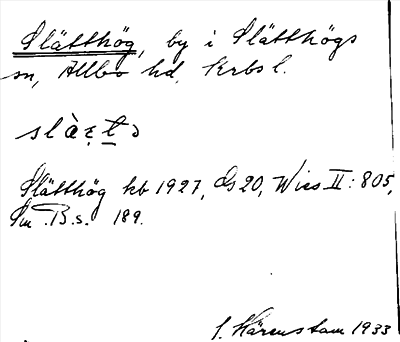 Slätthög, by i Slätthögs
sn, Allbo hd, Krbs l.
slàẹt̠ɔ
Slätthög hb 1927, Gs 20, Wies II: 805,
Sm. B. s. 189.
1933